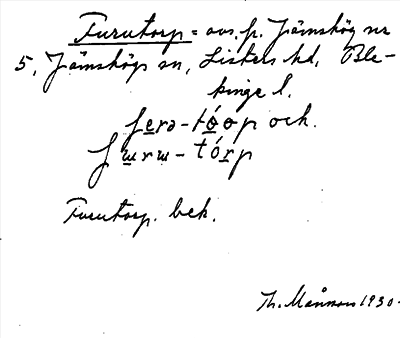 Furutorp = avs. fr. Jämshög nr
5, Jämshögs sn, Listers hd, Ble-
kinge l.
ferə-tóop och.
furu-tórp
Furutorp. bek.
Th. Månsson 1930.